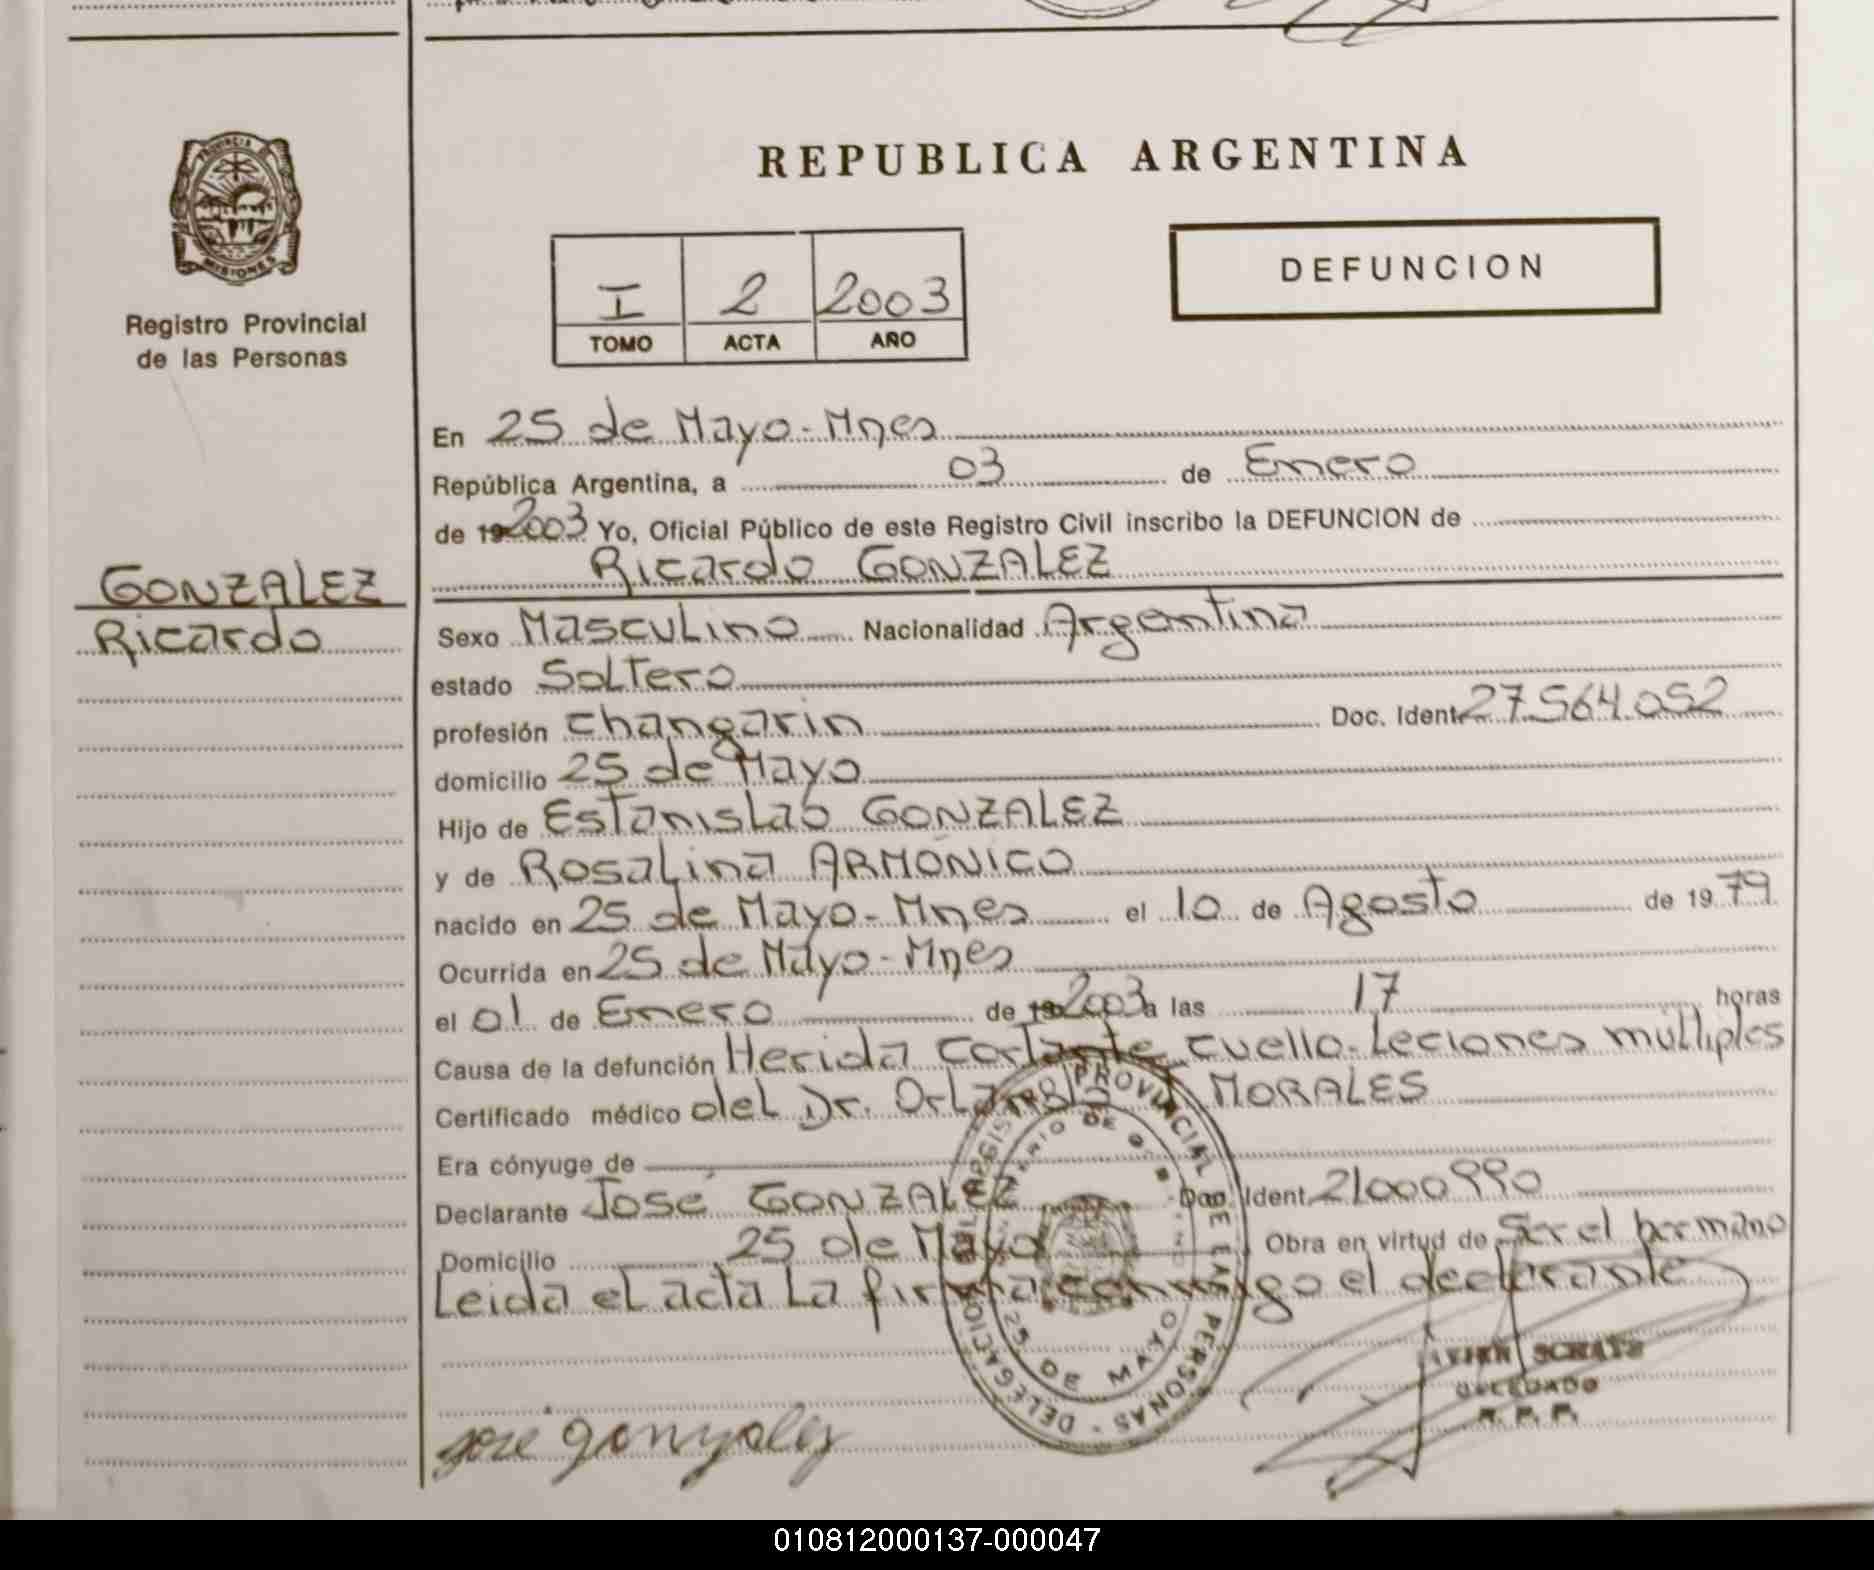 PROVINCIA
MISIONES
Registro Provincial
de las Personas
GONZALEZ
Ricardo
REPUBLICA ARGENTINA
I 2 2003
TOMO ACTA AÑO
DEFUNCION
En 25 de Mayo - Mnes
República Argentina, a 03 de Enero
de 19 2003 Yo, Oficial Público de este Registro Civil inscribo la DEFUNCION de
Ricardo GONZALEZ
Sexo Masculino Nacionalidad Argentina
estado Soltero
profesión changarin Doc. Ident. 27.564.052
domicilio 25 de Mayo
Hijo de Estanislao GONZALEZ
y de Rosalina ARMONICO
nacido en 25 de Mayo - Mnes el 10 de Agosto de 19 79
Ocurrida en 25 de Mayo - Mnes
el 01 de Enero de 19 2003 a las 17 horas
Causa de la defunción Herida Cortante cuello - Leciones multiples
Certificado médico del Dr. Orlando MORALES
Era cónyuge de
Declarante José GONZALEZ Doc. Ident. 21000990
Domicilio 25 de Mayo Obra en virtud de Ser el hermano
Leida el acta La firma conmigo el declarante
REGISTRO PROVINCIAL DE LAS PERSONAS - DELEGACION
25 DE MAYO
SCHATZ
DELEGADO
R. P. P.
jose gonzalez
010812000137-000047